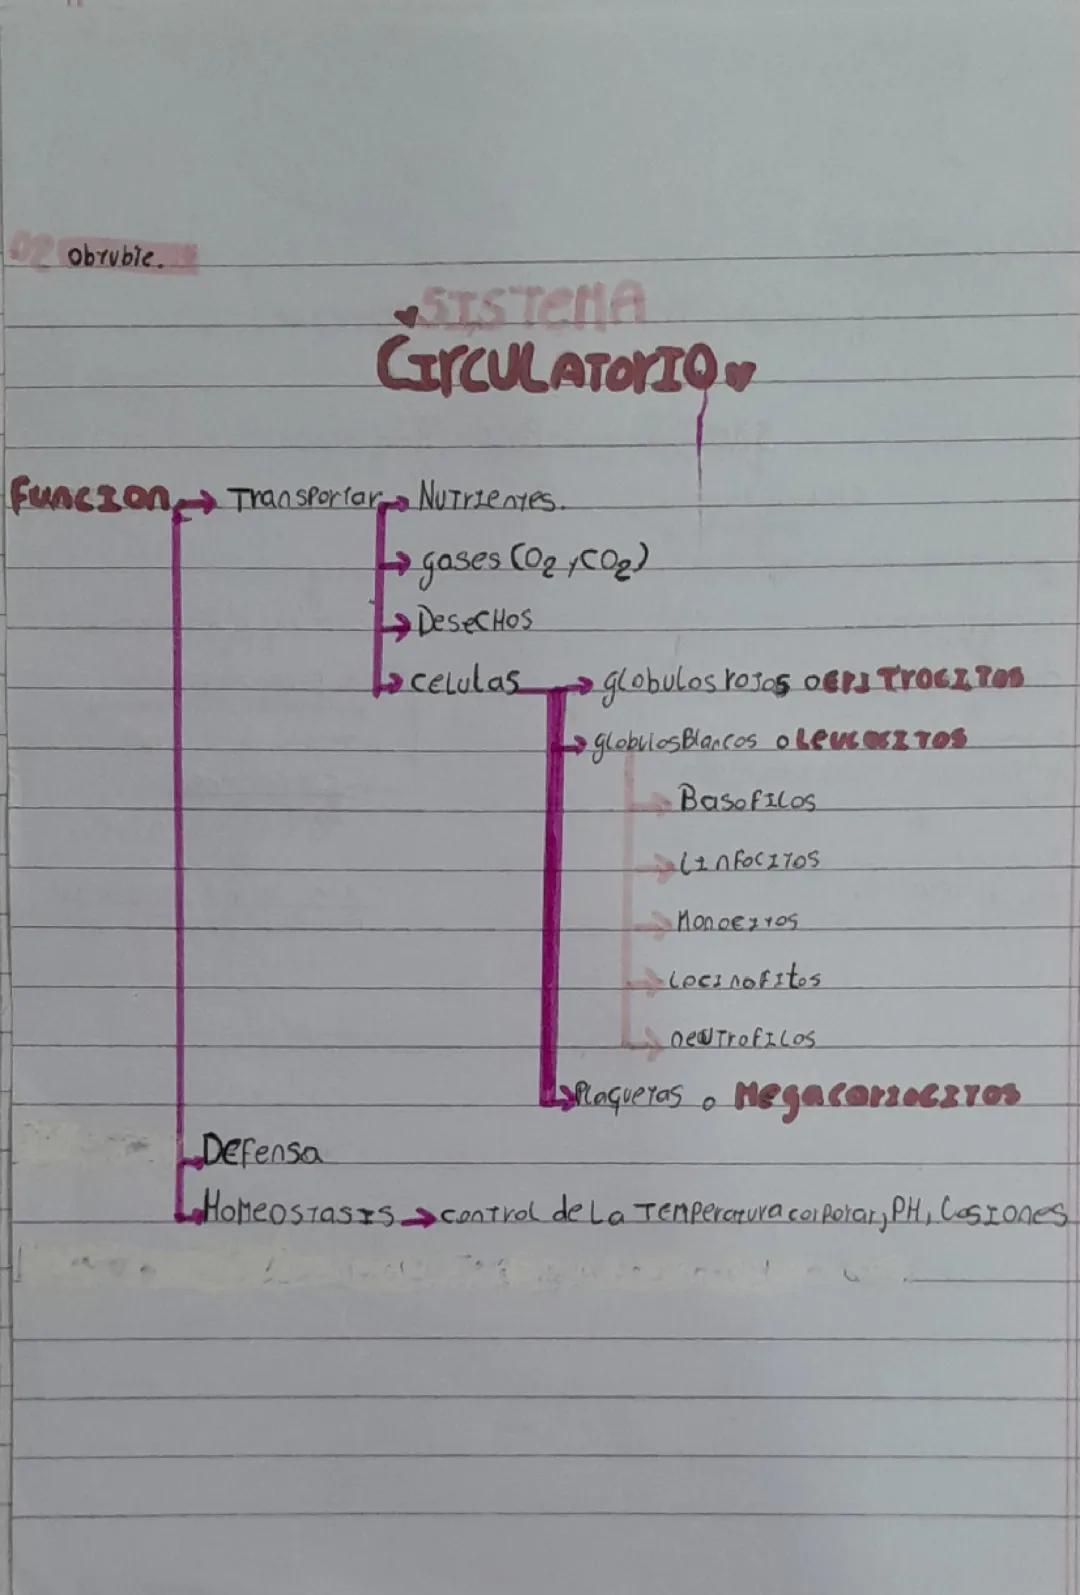 02 obrubre.
SISTEMA
CIrCULATOrIO
FuncIon → Transportar → NuTrIentes.
→ gases (O2, CO2)
→ DeseCHos
→ celulas → globulos rojos o erITrocITos
→ globulos Blancos o LeucocITos
→ BasofILos
→ LInfocITos
→ MonocITos
→ LocInofItos
→ neuTrofILos
→ Plaquetas o MegacarIocITos
Defensa
HoMeosTasIs → control de La TeMperatura corporar, PH, LesIones